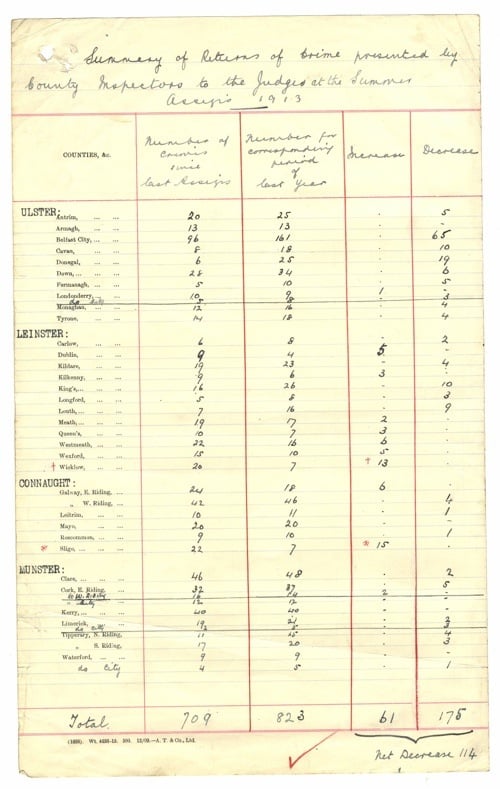 Summary of Returns of Crime presented by
County Inspectors to the Judges at the Summer
Assizes 1913
COUNTIES, &c. Number of Crimes since last Assizes Number for corresponding period of last Year Increase Decrease
ULSTER:
Antrim, ... ... 20 25 . 5
Armagh, ... ... 13 13 . -
Belfast City, ... ... 96 161 . 65
Cavan, ... ... 8 18 . 10
Donegal, ... ... 6 25 . 19
Down, ... ... 28 34 . 6
Fermanagh, ... ... 5 10 . 5
Londonderry, ... ... 10 9 1 .
do City 5 8 . 3
Monaghan, ... ... 12 4
Tyrone, ... ... 14 18 . 4
LEINSTER:
Carlow, ... ... 6 8 . 2
Dublin, ... ... 9 4 5 -
Kildare, ... ... 19 23 . 4
Kilkenny, ... ... 9 6 3 .
King's, ... ... 16 26 . 10
Longford, ... ... 5 8 . 3
Louth, ... ... 7 16 . 9
Meath, ... ... 19 17 2 .
Queen's, ... ... 10 7 3 .
Westmeath, ... ... 22 16 6 .
Wexford, ... ... 15 10 5 .
† Wicklow, ... ... 20 7 † 13 .
CONNAUGHT:
Galway, E. Riding, ... 24 18 6 .
„ W. Riding, ... 42 46 . 4
Leitrim, ... ... 10 11 . 1
Mayo, ... ... 20 20 . -
Roscommon, ... ... 9 10 . 1
* Sligo, ... ... 22 7 * 15 .
MUNSTER:
Clare, ... ... 46 48 . 2
Cork, E. Riding, ... 32 37 . 5
do W. Riding 16 14 2 .
„ City 12 12 . .
Kerry, ... ... 40 40 . .
Limerick, ... ... 19 21 . 2
do City 2 5 . 3
Tipperary, N. Riding, 11 15 . 4
„ S. Riding, 17 20 . 3
Waterford, ... ... 9 9 . .
do City 4 5 . 1
Total 709 823 61 175
(1898). Wt. 4626-13. 500. 12/09.—A. T. & Co., Ltd.
Net Decrease 114